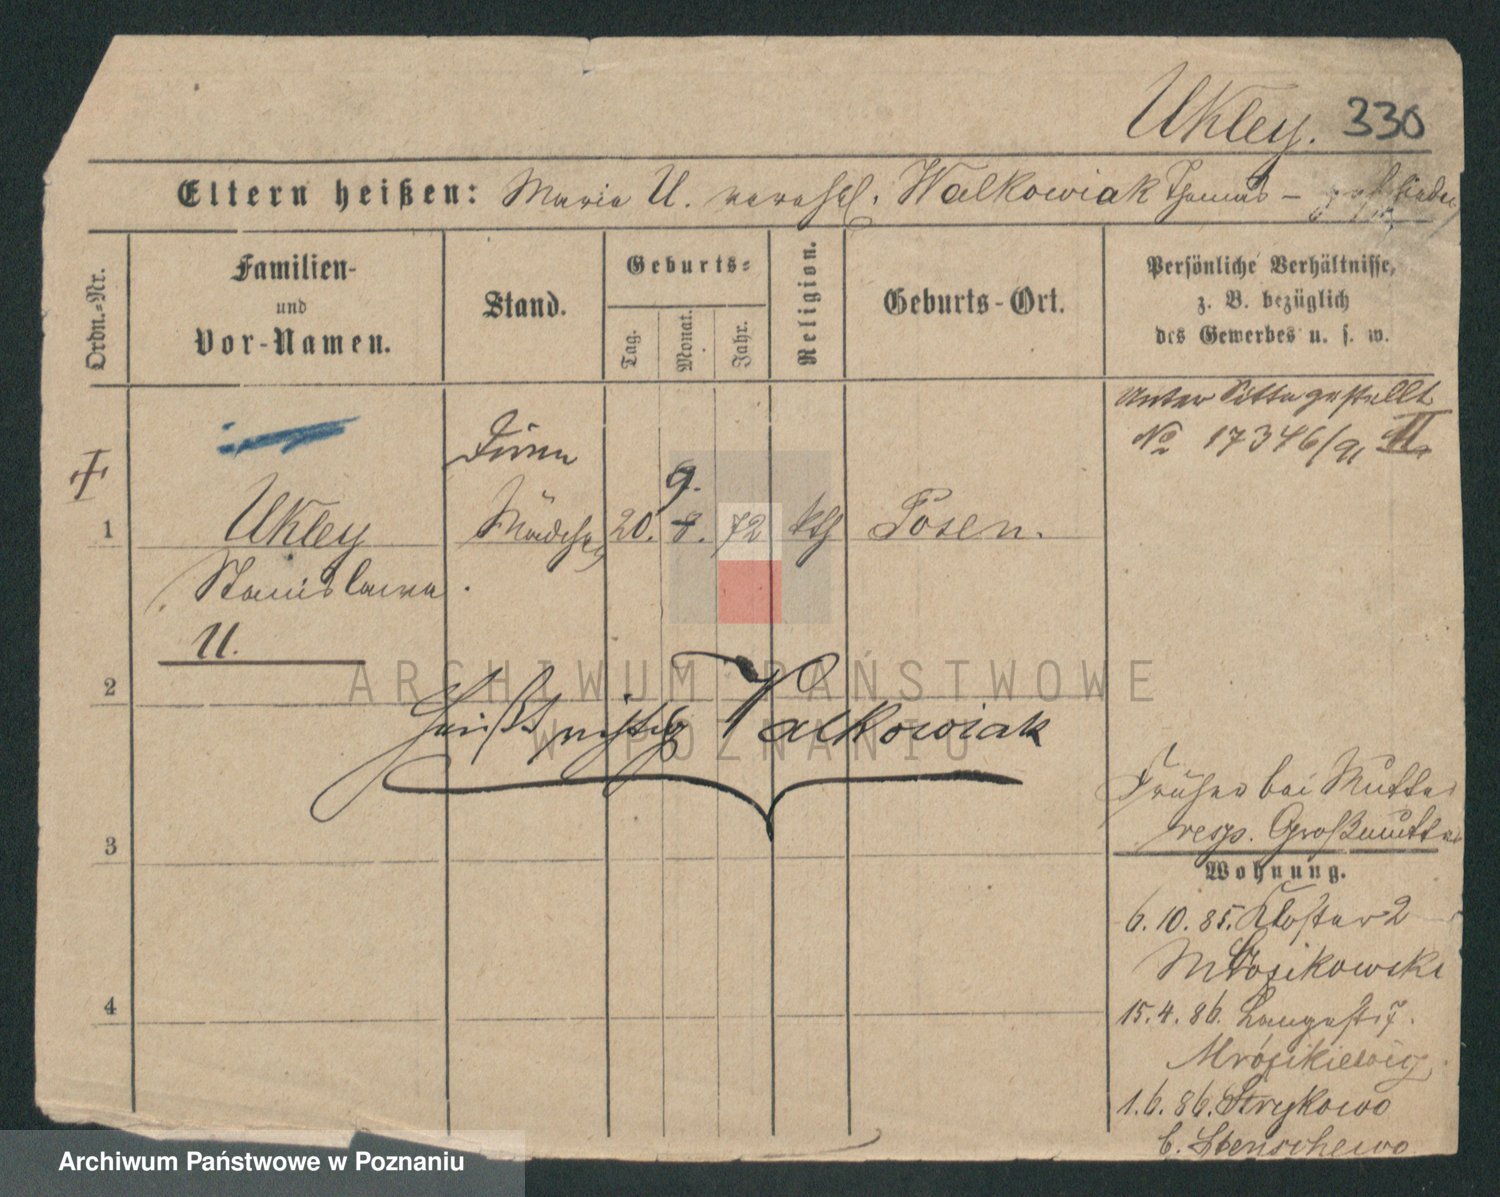 Ukley. 330
Eltern heißen: Maria U. verehel. Walkowiak Thomas –
Ordn.-Nr.
Familien-
und
Vor-Namen.
Stand.
Geburts-
Tag.
Monat.
Jahr.
Religion.
Geburts-Ort.
Persönliche Verhältnisse,
z. B. bezüglich
des Gewerbes u. s. w.
Unter Sitte gestellt
No 17346/91 II
Dirne
9.
1 Ukley Mädchen 20. 8. 72 kth Posen.
Stanislawa.
U.
2
heißt richtig Walkowiak
Früher bei Mutter
resp. Großmutter
3
Wohnung.
6.10.85. Kloster 2
15.4.86. Langestr 7.
4
1.6.86. Strykowo
b. Stenschewo
ARCHIWUM PAŃSTWOWE
W POZNANIU
Archiwum Państwowe w Poznaniu